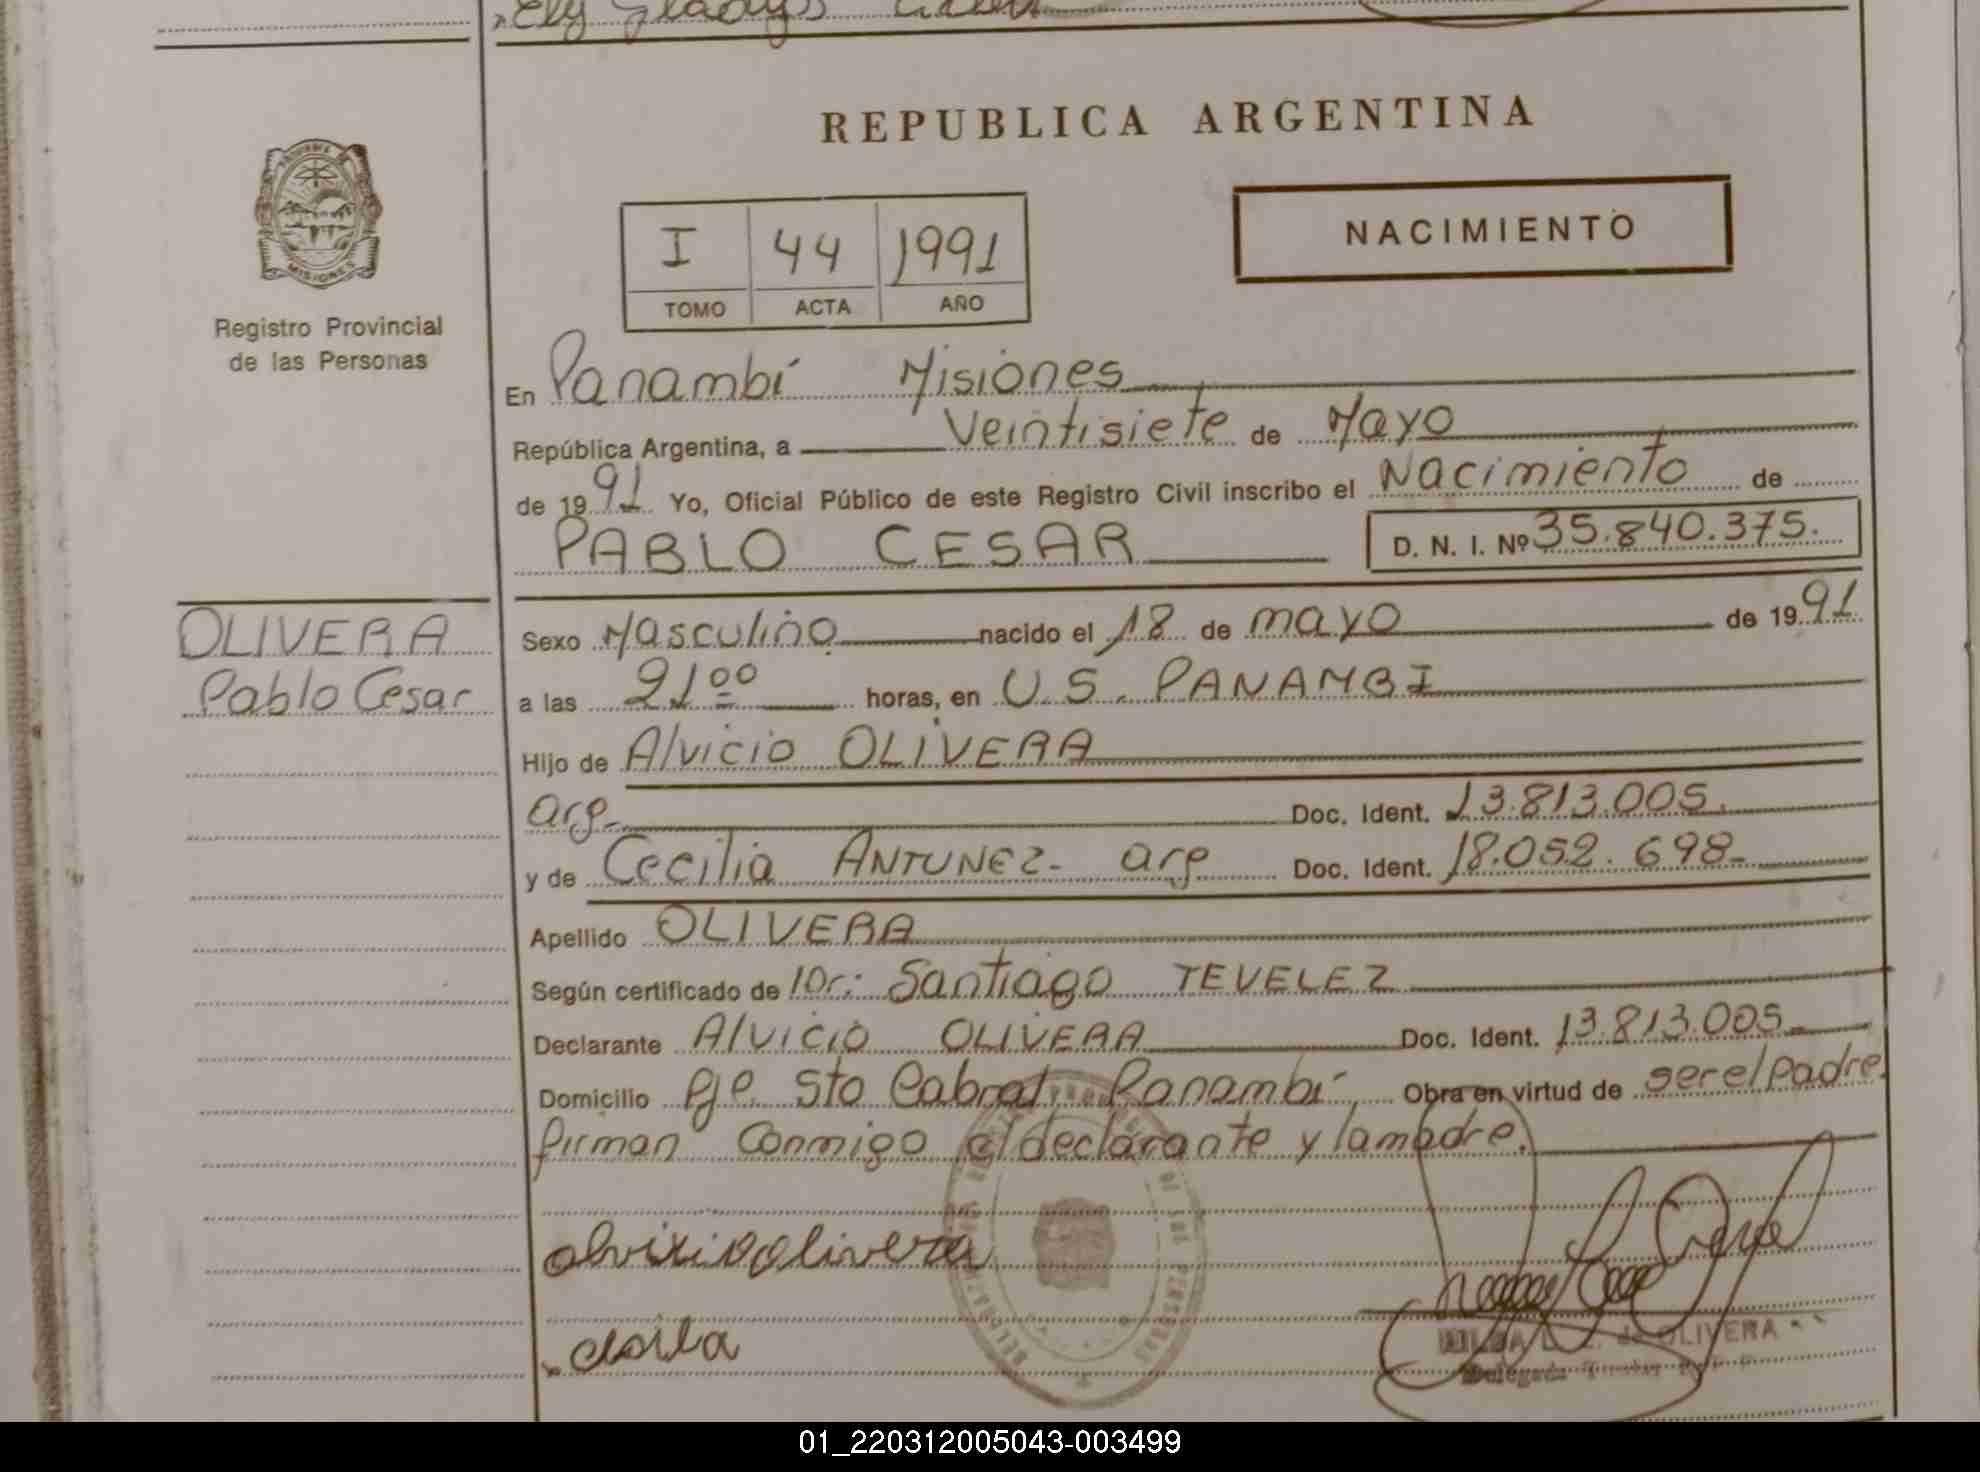 Ely Gladys
REPUBLICA ARGENTINA
NACIMIENTO
I 44 1991
TOMO ACTA AÑO
MISIONES
Registro Provincial
de las Personas
En Panambí Misiones
República Argentina, a Veintisiete de Mayo
de 1991 Yo, Oficial Público de este Registro Civil inscribo el Nacimiento de
PABLO CESAR D. N. I. Nº 35.840.375.
OLIVERA
Pablo Cesar
Sexo Masculino nacido el 18 de mayo de 1991
a las 21 00 horas, en U.S. PANAMBI
Hijo de Alvicio OLIVERA
arg. Doc. Ident. 13.813.005.
y de Cecilia ANTUNEZ- arg Doc. Ident. 18.052.698-
Apellido OLIVERA
Según certificado de Dr: Santiago TEVELEZ
Declarante Alvicio OLIVERA Doc. Ident. 13.813.005-
Domicilio Pje. Sto Cabral Panambí Obra en virtud de ser el Padre.
firman conmigo el declarante y la madre.
alvixio olivera
de OLIVERA
Delegada Titular
01_220312005043-003499